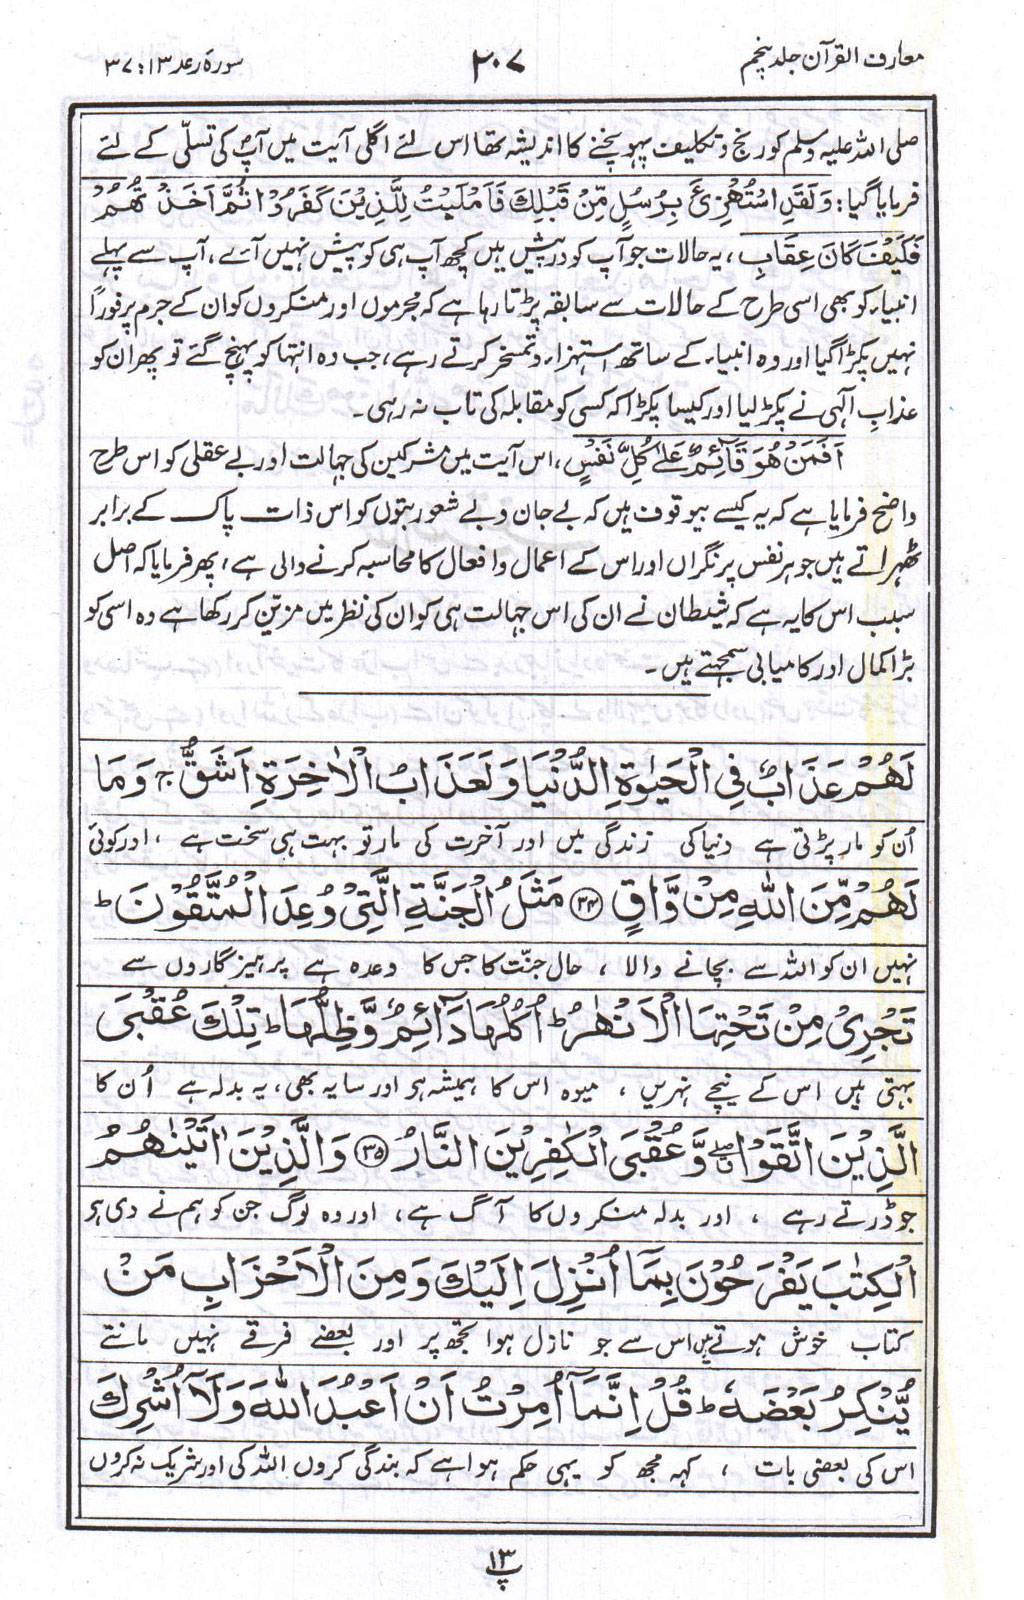 معارف القرآن جلد پنجم
۲۰۷
سورۃ رعد ۱۳ : ۳۷
صلی اللہ علیہ وسلم کو رنج و تکلیف پہونچنے کا اندیشہ تھا اس لئے اگلی آیت میں آپؐ کی تسلّی کے لئے
فرمایا گیا: وَلَقَدِ اسْتُهْزِئَ بِرُسُلٍ مِّنْ قَبْلِكَ فَاَمْلَيْتُ لِلَّذِيْنَ كَفَرُوْا ثُمَّ اَخَذْتُهُمْ
فَكَيْفَ كَانَ عِقَابِ، یہ حالات جو آپ کو درپیش ہیں کچھ آپ ہی کو پیش نہیں آئے، آپ سے پہلے
انبیاء کو بھی اسی طرح کے حالات سے سابقہ پڑتا رہا ہے کہ مجرموں اور منکروں کو ان کے جرم پر فوراً
نہیں پکڑا گیا اور وہ انبیاء کے ساتھ استہزاء و تمسخر کرتے رہے، جب وہ انتہا کو پہنچ گئے تو پھر ان کو
عذابِ الٰہی نے پکڑ لیا اور کیسا پکڑا کہ کسی کو مقابلہ کی تاب نہ رہی۔
اَفَمَنْ هُوَ قَآئِمٌ عَلٰی كُلِّ نَفْسٍ، اس آیت میں مشرکین کی جہالت اور بے عقلی کو اس طرح
واضح فرمایا ہے کہ یہ کیسے بیوقوف ہیں کہ بے جان و بے شعور بتوں کو اس ذات پاک کے برابر
ٹھہراتے ہیں جو ہر نفس پر نگراں اور اس کے اعمال و افعال کا محاسبہ کرنے والی ہے، پھر فرمایا کہ اصل
سبب اس کا یہ ہے کہ شیطان نے ان کی اس جہالت ہی کو ان کی نظر میں مزیّن کر رکھا ہے وہ اسی کو
بڑا کمال اور کامیابی سمجھتے ہیں۔
لَهُمْ عَذَابٌ فِی الْحَيٰوةِ الدُّنْيَا وَلَعَذَابُ الْاٰخِرَةِ اَشَقُّ ۚ وَمَا
اُن کو مار پڑتی ہے دنیا کی زندگی میں اور آخرت کی مار تو بہت ہی سخت ہے، اور کوئی
لَهُمْ مِّنَ اللّٰهِ مِنْ وَّاقٍ ﴿۳۴﴾ مَثَلُ الْجَنَّةِ الَّتِیْ وُعِدَ الْمُتَّقُوْنَ ؕ
نہیں ان کو اللہ سے بچانے والا، حال جنّت کا جس کا وعدہ ہے پرہیزگاروں سے
تَجْرِیْ مِنْ تَحْتِهَا الْاَنْهٰرُ ؕ اُكُلُهَا دَآئِمٌ وَّظِلُّهَا ؕ تِلْكَ عُقْبَی
بہتی ہیں اس کے نیچے نہریں، میوہ اس کا ہمیشہ ہے اور سایہ بھی، یہ بدلہ ہے اُن کا
الَّذِيْنَ اتَّقَوْا ۖ وَّعُقْبَی الْكٰفِرِيْنَ النَّارُ ﴿۳۵﴾ وَالَّذِيْنَ اٰتَيْنٰهُمُ
جو ڈرتے رہے، اور بدلہ منکروں کا آگ ہے، اور وہ لوگ جن کو ہم نے دی ہے
الْكِتٰبَ يَفْرَحُوْنَ بِمَآ اُنْزِلَ اِلَيْكَ وَمِنَ الْاَحْزَابِ مَنْ
کتاب خوش ہوتے ہیں اس سے جو نازل ہوا تجھ پر اور بعضے فرقے نہیں مانتے
يُّنْكِرُ بَعْضَهٗ ؕ قُلْ اِنَّمَآ اُمِرْتُ اَنْ اَعْبُدَ اللّٰهَ وَلَآ اُشْرِكَ
اس کی بعضی بات، کہہ مجھ کو یہی حکم ہوا ہے کہ بندگی کروں اللہ کی اور شریک نہ کروں
پ ۱۳